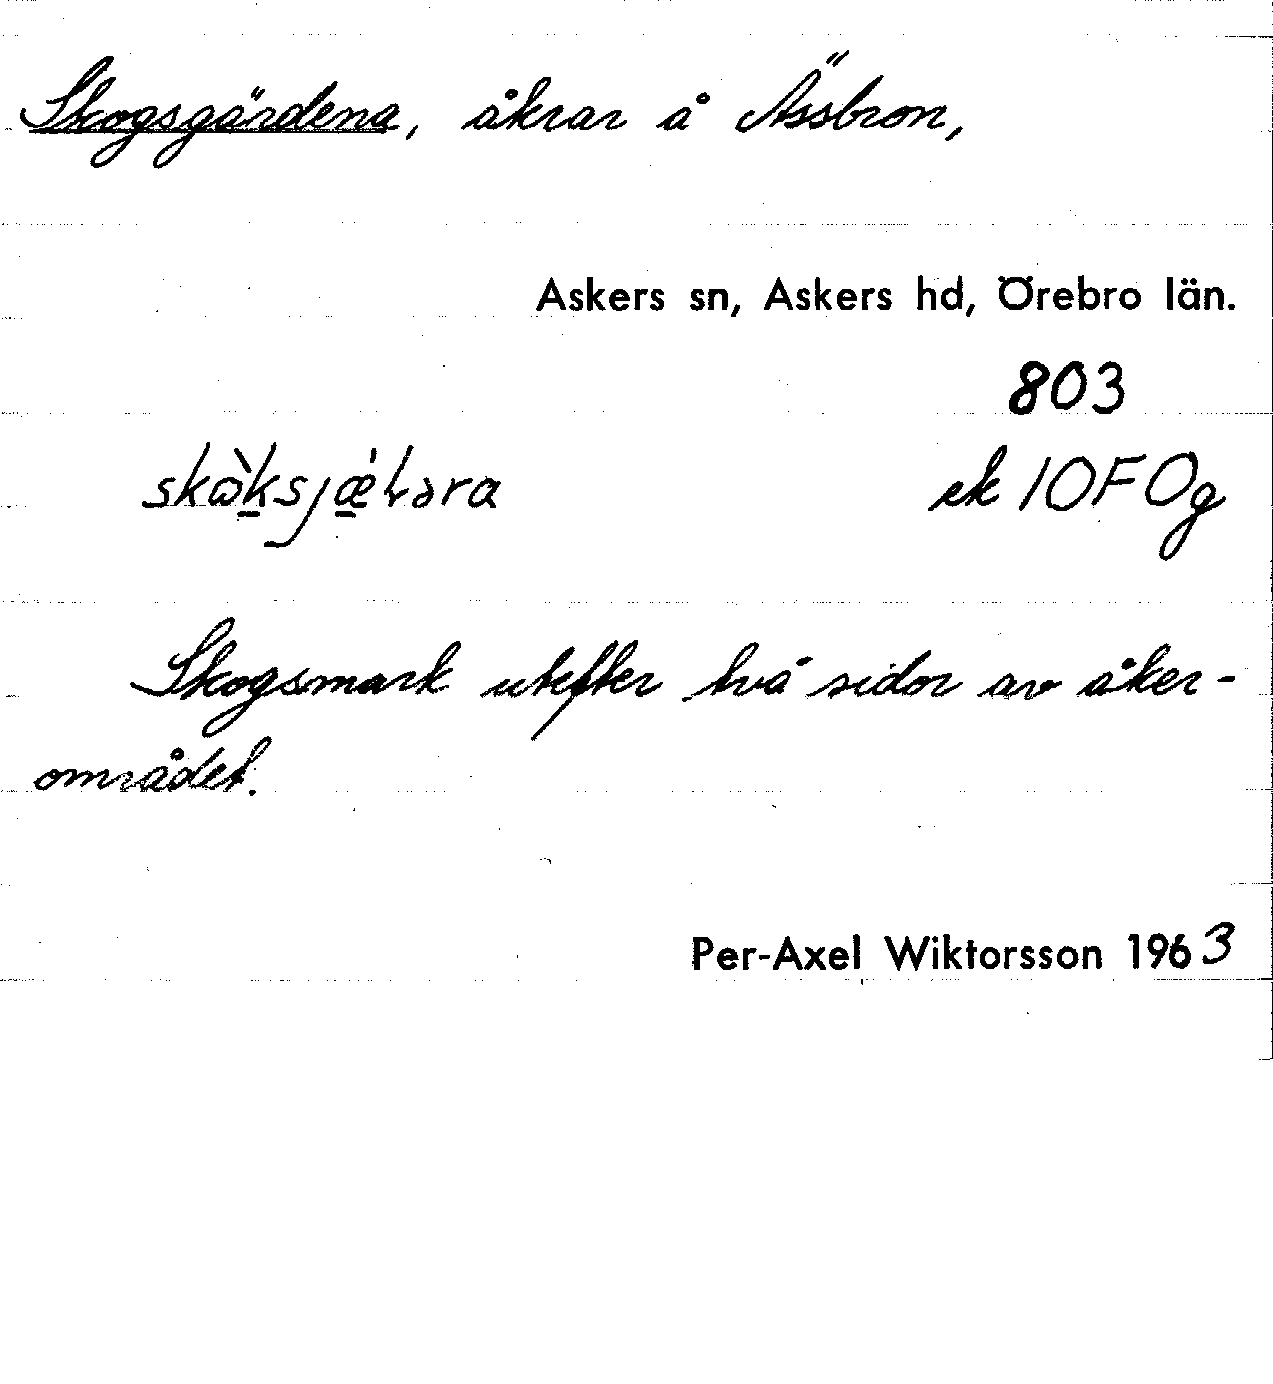 Skogsgärdena, åkrar å Ässbron,
Askers sn, Askers hd, Örebro län.
803
ek 10F0g
Skogsmark utefter två sidor av åker-
området.
Per-Axel Wiktorsson 1963